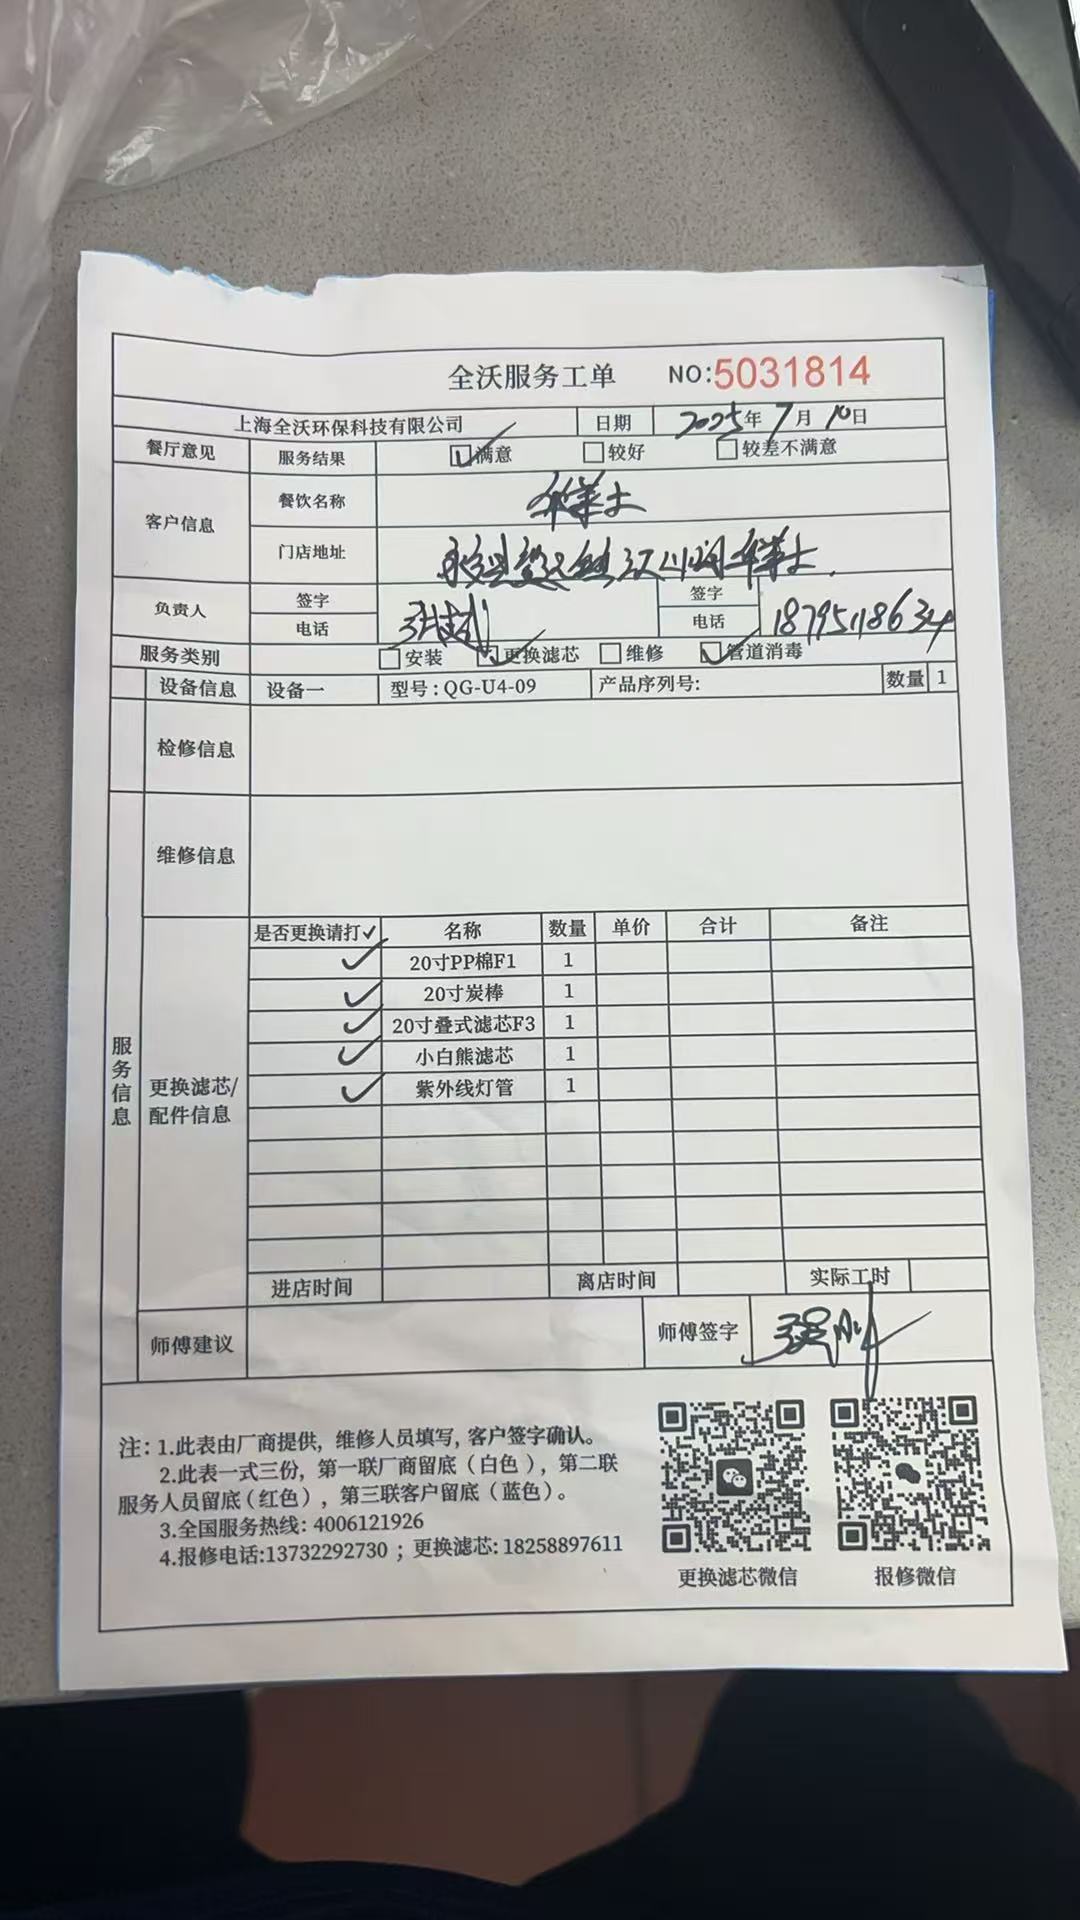 全沃服务工单 NO:5031814
上海全沃环保科技有限公司 日期 2025年7月10日
餐厅意见 服务结果 满意 较好 较差不满意
客户信息 餐饮名称 华莱士
门店地址 华莱士
负责人 签字 签字
电话 电话 18795118634
服务类别 安装 更换滤芯 维修 管道消毒
设备信息 设备一 型号:QG-U4-09 产品序列号: 数量 1
检修信息
维修信息
服务信息
更换滤芯/
配件信息
是否更换请打✓ 名称 数量 单价 合计 备注
✓ 20寸PP棉F1 1
✓ 20寸炭棒 1
✓ 20寸叠式滤芯F3 1
✓ 小白熊滤芯 1
✓ 紫外线灯管 1
进店时间 离店时间 实际工时
师傅建议 师傅签字
注:1.此表由厂商提供,维修人员填写,客户签字确认。
2.此表一式三份,第一联厂商留底(白色),第二联
服务人员留底(红色),第三联客户留底(蓝色)。
3.全国服务热线:4006121926
4.报修电话:13732292730 ;更换滤芯:18258897611
更换滤芯微信 报修微信